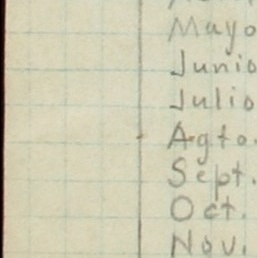 Mayo
Junio
Julio
Agto.
Sept.
Oct.
Nov.